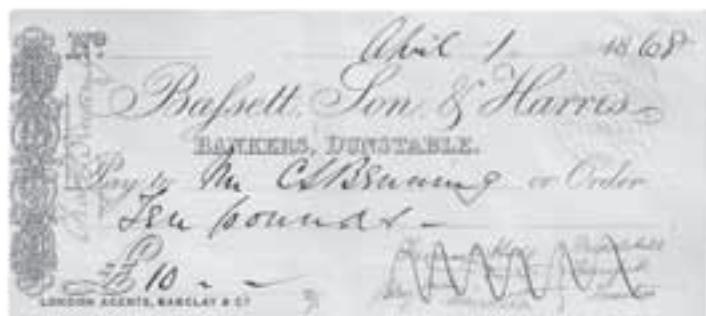 No. April 1 1868
Bassett, Son & Harris
BANKERS, DUNSTABLE.
Pay to Mr C S Benning or Order
Ten pounds -
£ 10 - -
LONDON AGENTS, BARCLAY & Co